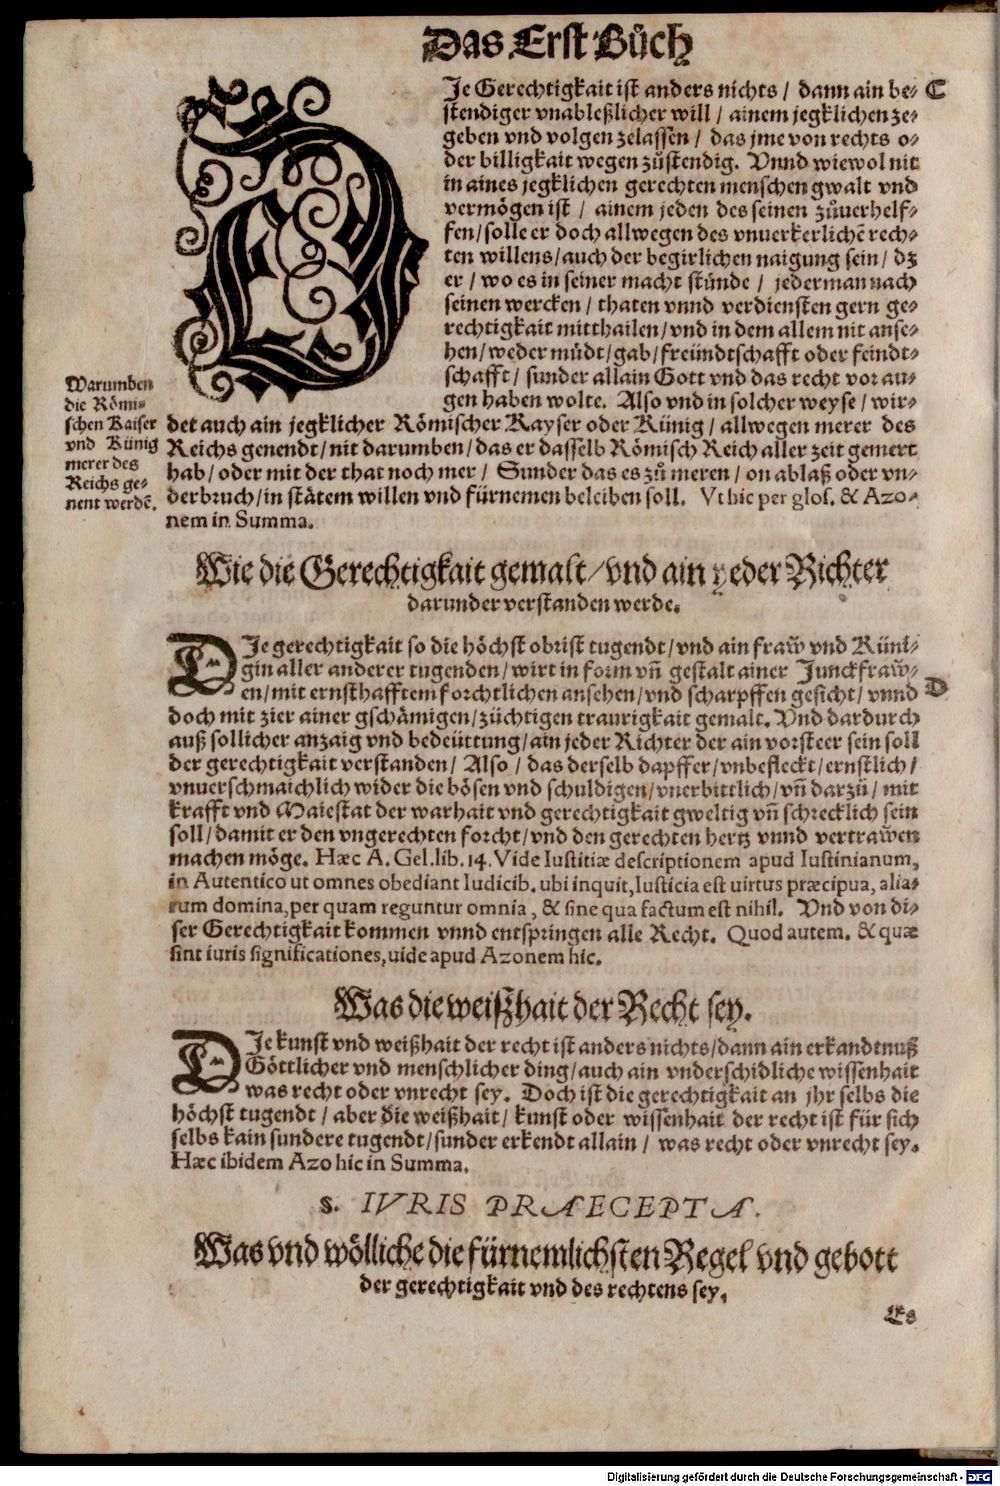 Das Erst Bůch
DIe Gerechtigkait ist anders nichts / dann ain be⸗ C
stendiger vnableßlicher will / ainem jegklichen ze⸗
geben vnd volgen zelassen / das jme von rechts o⸗
der billigkait wegen zůstendig. Vnnd wiewol nit
in aines jegklichen gerechten menschen gwalt vnd
vermögen ist / ainem jeden des seinen zůuerhelf⸗
fen / solle er doch allwegen des vnuerkerlichē rech⸗
ten willens / auch der begirlichen naigung sein / dz
er / wo es in seiner macht stünde / jederman nach
seinen wercken / thaten vnnd verdiensten gern ge⸗
rechtigkait mitthailen / vnd in dem allem nit anse⸗
hen / weder müdt / gab / freündtschafft oder feindt⸗
schafft / sunder allain Gott vnd das recht vor au⸗
gen haben wolte. Also vnd in solcher weyse / wir⸗
det auch ain jegklicher Römischer Kayser oder Künig / allwegen merer des
Reichs genendt / nit darumben / das er dasselb Römisch Reich aller zeit gemert
hab / oder mit der that noch mer / Sunder das es zů meren / on ablaß oder vn⸗
derbruch / in stätem willen vnd fürnemen beleiben soll. Vt hic per glos. & Azo-
nem in Summa.
Warumben
die Römi⸗
schen Kaiser
vnd Künig
merer des
Reichs ge⸗
nent werdē.
Wie die Gerechtigkait gemalt / vnd ain yeder Richter
darunder verstanden werde.
DIe gerechtigkait so die höchst obrist tugendt / vnd ain fraw̃ vnd Küni⸗
gin aller anderer tugenden / wirt in form vñ gestalt ainer Junckfraw̃⸗
en / mit ernsthafftem forchtlichen ansehen / vnd scharpffen gesicht / vnnd D
doch mit zier ainer gschämigen / züchtigen traurigkait gemalt. Vnd dardurch
auß sollicher anzaig vnd bedeüttung / ain jeder Richter der ain vorsteer sein soll
der gerechtigkait verstanden / Also / das derselb dapffer / vnbefleckt / ernstlich /
vnuerschmaichlich wider die bösen vnd schuldigen / vnerbittlich / vñ darzů / mit
krafft vnd Maiestat der warhait vnd gerechtigkait gweltig vñ schrecklich sein
soll / damit er den vngerechten forcht / vnd den gerechten hertz vnnd vertraw̃en
machen möge. Hæc A. Gel. lib. 14. Vide Iustitiæ descriptionem apud Iustinianum,
in Autentico ut omnes obediant Iudicib. ubi inquit, Iusticia est uirtus præcipua, alia-
rum domina, per quam reguntur omnia, & sine qua factum est nihil. Vnd von di⸗
ser Gerechtigkait kommen vnnd entspringen alle Recht. Quod autem. & quæ
sint iuris significationes, uide apud Azonem hic.
Was die weißhait der Recht sey.
DIe kunst vnd weißhait der recht ist anders nichts / dann ain erkandtnuß
Göttlicher vnd menschlicher ding / auch ain vnderschidliche wissenhait
was recht oder vnrecht sey. Doch ist die gerechtigkait an jhr selbs die
höchst tugendt / aber die weißhait / kunst oder wissenhait der recht ist für sich
selbs kain sundere tugendt / sunder erkendt allain / was recht oder vnrecht sey.
Hæc ibidem Azo hic in Summa.
§. IVRIS PRAECEPTA.
Was vnd wölliche die fürnemlichsten Regel vnd gebott
der gerechtigkait vnd des rechtens sey.
Es
Digitalisierung gefördert durch die Deutsche Forschungsgemeinschaft - DFG